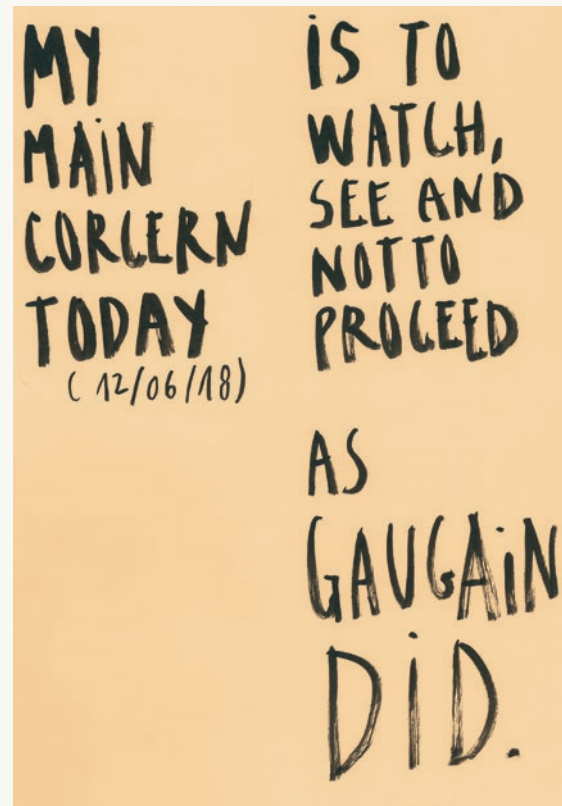 MY
MAiN
CORCERN
TODAY
(12/06/18)
iS TO
WATCH,
SEE AND
NOT TO
PROCEED
AS
GAUGAiN
DiD.